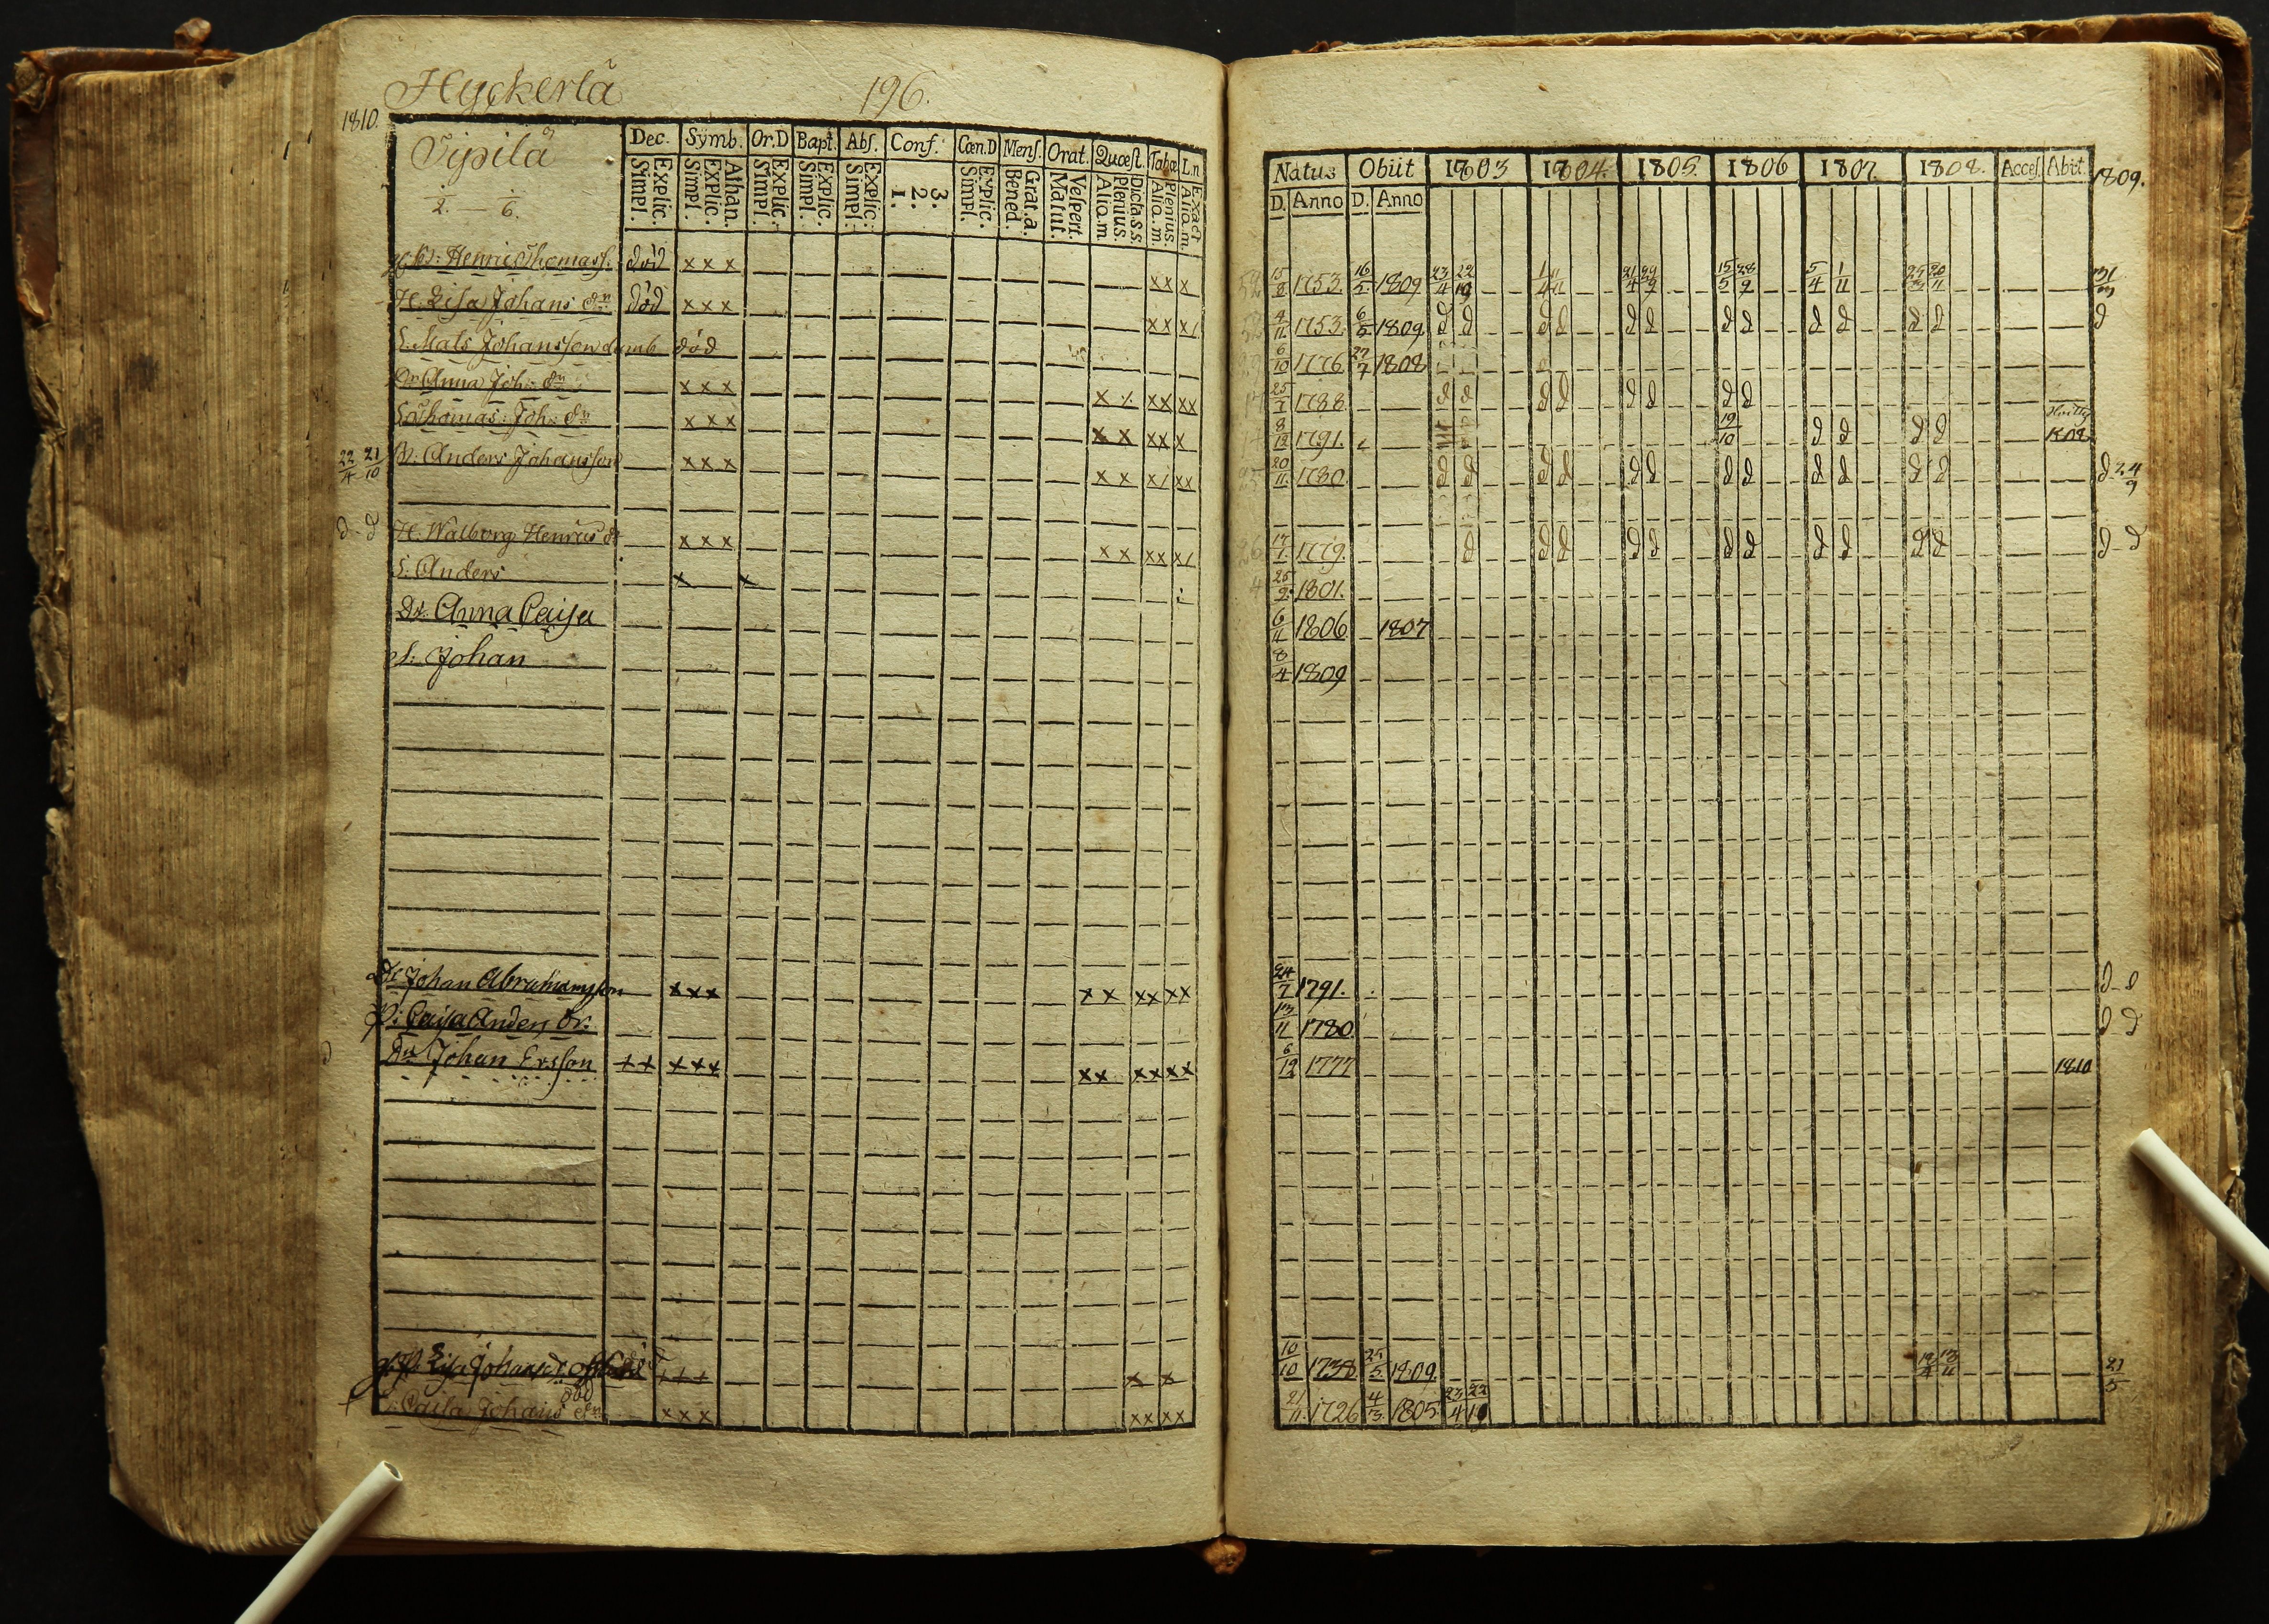 Hyckerlä 196.
1810.
Sipilä
2. — 6.
Dec. Symb. Or.D Bapt. Abs. Conf. Cœn.D Mens. Orat. Quæst. Tabæ L.n
Explic. Simpl. Athan. Explic. Simpl. Explic. Simpl. Explic. Simpl. Explic. Simpl. 3. 2. 1. Explic. Simpl. Grat.a. Bened. Vespert. Matut. Dicta.s.s. Plenius. Aliq.m Plenius. Aliq.m. Exact Aliq.m.
Henric Thomass. död x x x x x x
H. Lisa Johans dr död x x x x x x
S. Mats Johansson dumb död
Dr Anna Joh: dr x x x x x x x x x
S. Thomas Joh: x x x x x x x x
22/4 21/10 Anders Johansson x x x x x x x x
d - d H. Walborg Henrics dr x x x x x x x x
S. Anders x x
Dr. Anna Caisa
S: Johan
Dr Johan Abrahamsson x x x x x x x x x
P: Caisa Anders dr:
Johan Ersson + + x x x x x x x x x
Lisa Johans d. + + + x x
Caisa Johans dr död x x x x x x x
Natus Obiit 1803 1804. 1805. 1806 1807. 1808. Acces. Abiit. 1809.
D. Anno D. Anno
15/8 1753. 16/5 1809 23/4 22/19 21/4 29/9 15/5 28/9 5/4 1/11
4/11 1753. 6/5 1809 d d d d d d d d d d d d d
6/10 1776. 27/7 1808
25/7 1788. d d d d d d d d
8/12 1791. 19/10 d d d d 1808
20/11 1780. d d d d d d d d d d d d d 24/9
17/1 1779. d d d d d d d d d d d d - d
25/2 1801.
6/11 1806 1807
8/4 1809
24/7 1791. d - d
13/11 1780. d - d
6/12 1777 1810
10/10 1738. 25/5 1809.
21/11 1726 4/3 1805. 23/4 22/10